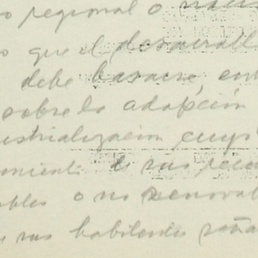 o regional o
o que el desarrollo
debe basarse en
sobre la adopción
ustrialización cuyo
miento de sus recu
ables o no renovab
e sus habitantes